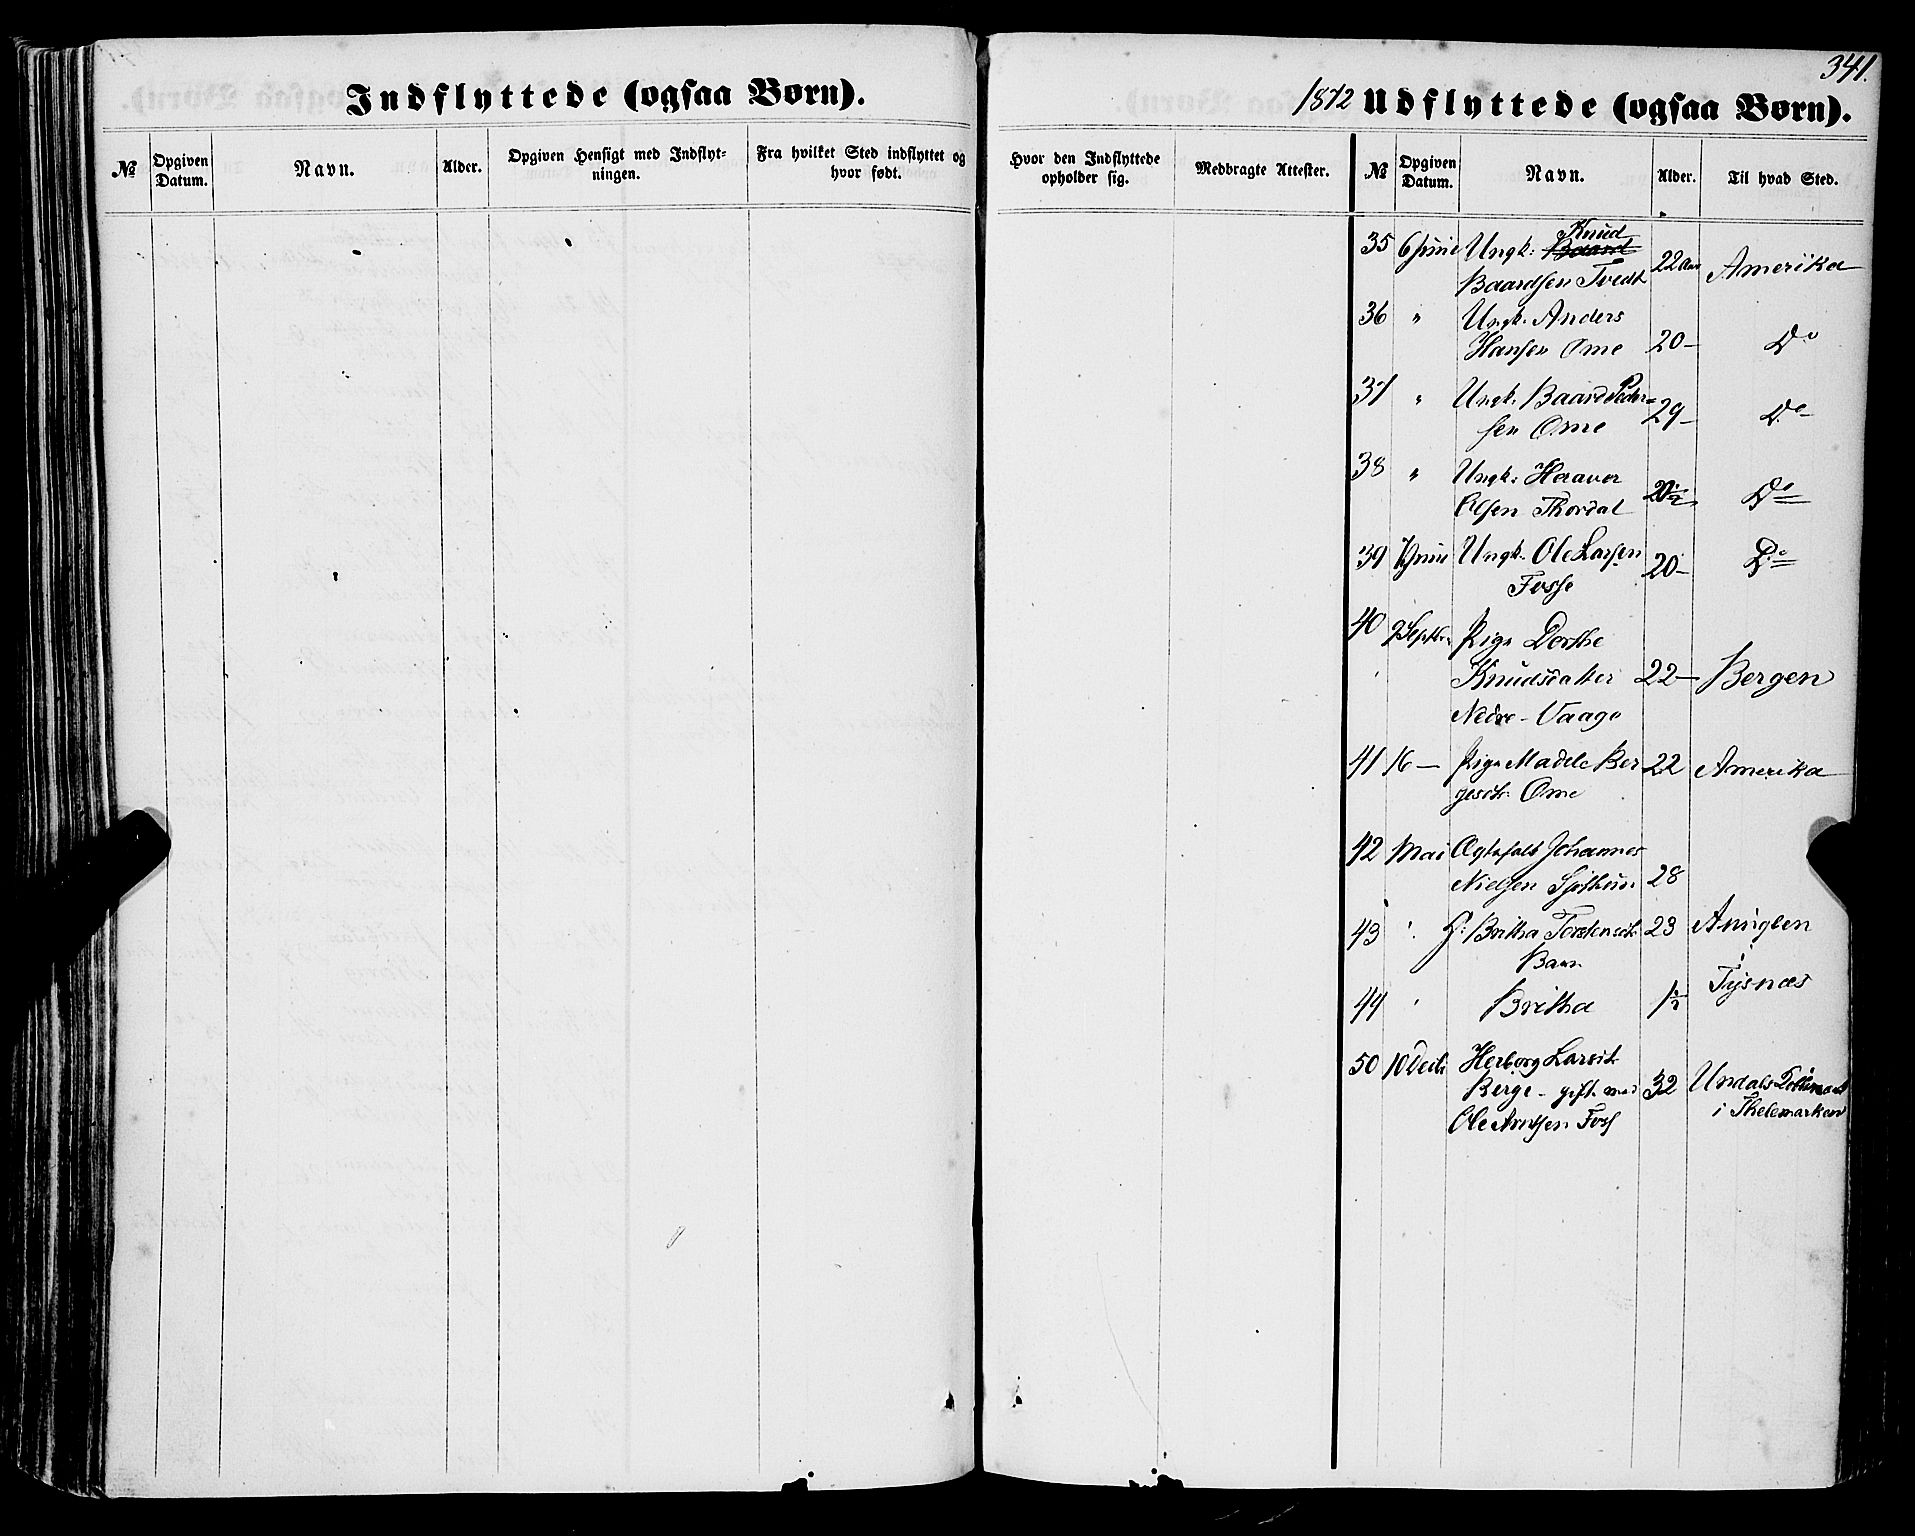 341.
Indflyttede (ogsaa Børn).
1872 Udflyttede (ogsaa Børn).
№ Opgiven Datum. Navn. Alder. Opgiven Hensigt med Indflyt=ningen. Fra hvilket Sted indflyttet og hvor født.
Hvor den Indflyttede opholder sig. Medbragte Attester. № Opgiven Datum. Navn. Alder. Til hvad Sted.
Knud
35 6 Juni Ungk: Baard 22 Aar Amerika
Baardsen Tvedt
36 " Ungk. Anders
Hansen Ome 20- Do
37 " Ungk. Baard Peder=
sen Ome 29- Do
38 " Ungk. Heraver
Olsen Thordal 20½ Do
39 Juni Ungk. Ole Larsen 20- Do
Fosse
40 9 Septbr Pige Dorthe
Knudsdatter 22- Bergen
Nedre-Vaage
41 16 - Pige Madele Ber 22 Amerika
gesdtr. Ome
42 Mai Johannes
Nielsen 28
43 " Britha Torstensdtr 23
Barn
Tysnæs
44 " Britha 1½
50 10 Decb Herborg Larsdtr
Berge - gift med 32 Undals
i Thelemarken
Ole Arntsen Foss